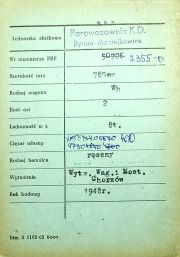 P K P
Jednostka służbowa
Parowozownia K.D.
Bytom-Maciejkowice
Nr inwentarza PKP
50706
3.355
Szerokość toru
785mm
Rodzaj wagonu
Wh
Ilość osi
2
Ładowność w t.
8t.
Ciężar własny
Rodzaj hamulca
ręczny
Wytwórnia
Wytw. Wag. i Most.
Chorzów
Rok budowy
1948r.